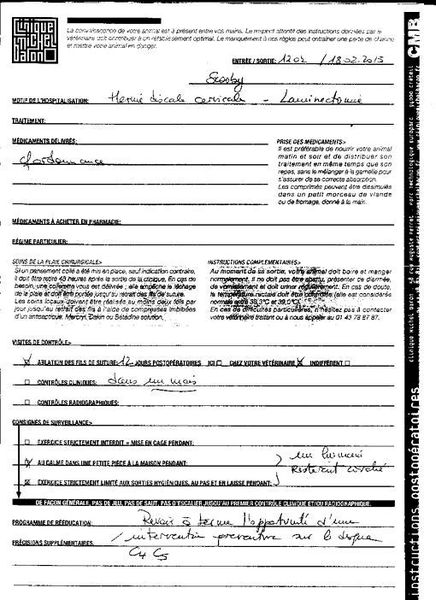 clinique
michel
baron
La convalescence de votre animal est à présent entre vos mains. Le respect attentif des instructions données par le
vétérinaire doit contribuer à un rétablissement optimal. Le manquement à nos règles peut entraîner une perte de chance
et mettre votre animal en danger.
CMB
ENTRÉE / SORTIE: 1202 / 18.02.2015
Scooby
MOTIF DE L'HOSPITALISATION: Hernie discale cervicale - Laminectomie
TRAITEMENT:
MÉDICAMENTS DÉLIVRÉS:
PRISE DES MEDICAMENTS>
Il est préférable de nourrir votre animal
matin et soir et de distribuer son
traitement en même temps que son
repas, sans le mélanger à la gamelle pour
s'assurer de sa correcte absorption.
Les comprimés peuvent être dissimulés
dans un petit morceau de viande
ou de fromage, donné à la main.
ordonnance
MÉDICAMENTS À ACHETER EN PHARMACIE:
RÉGIME PARTICULIER:
SOINS DE LA PLAIE CHIRURGICALE>
Si un pansement collé a été mis en place, sauf indication contraire,
il doit être retiré 48 heures après la sortie de la clinique. En cas de
besoin, une collerette vous est délivrée ; elle empêche le léchage
de la plaie et doit être portée jusqu'au retrait des fils de suture.
Les soins locaux doivent être réalisés au moins deux fois par
jour jusqu'au retrait des fils à l'aide de compresses imbibées
d'un antiseptique: Mercryl, Dakin ou Bétadine solution.
INSTRUCTIONS COMPLEMENTAIRES>
Au moment de sa sortie, votre animal doit boire et manger
normalement, il ne doit pas être abattu, présenter de diarrhée,
de vomissement et doit uriner régulièrement. En cas de doute,
la température rectale doit être contrôlée (elle est considérée
normale entre 38,3°C et 39,0°C).
En cas de difficultés particulières, n'hésitez pas à contacter
votre vétérinaire traitant ou à nous appeler au 01 43 78 27 87.
VISITES DE CONTRÔLE>
ABLATION DES FILS DE SUTURE: 12 JOURS POSTOPÉRATOIRES ICI CHEZ VOTRE VÉTÉRINAIRE INDIFFÉRENT
CONTRÔLES CLINIQUES: dans un mois
CONTRÔLES RADIOGRAPHIQUES:
CONSIGNES DE SURVEILLANCE>
EXERCICE STRICTEMENT INTERDIT = MISE EN CAGE PENDANT:
AU CALME DANS UNE PETITE PIÈCE À LA MAISON PENDANT:
EXERCICE STRICTEMENT LIMITÉ AUX SORTIES HYGIÉNIQUES, AU PAS ET EN LAISSE PENDANT:
DE FAÇON GÉNÉRALE, PAS DE JEU, PAS DE SAUT, PAS D'ESCALIER JUSQU'AU PREMIER CONTRÔLE CLINIQUE ET/OU RADIOGRAPHIQUE.
PROGRAMME DE RÉÉDUCATION: Revoir à terme l'opportunité d'une
PRÉCISIONS SUPPLÉMENTAIRES: intervention préventive sur le disque
C4 C5
instructions postopératoires